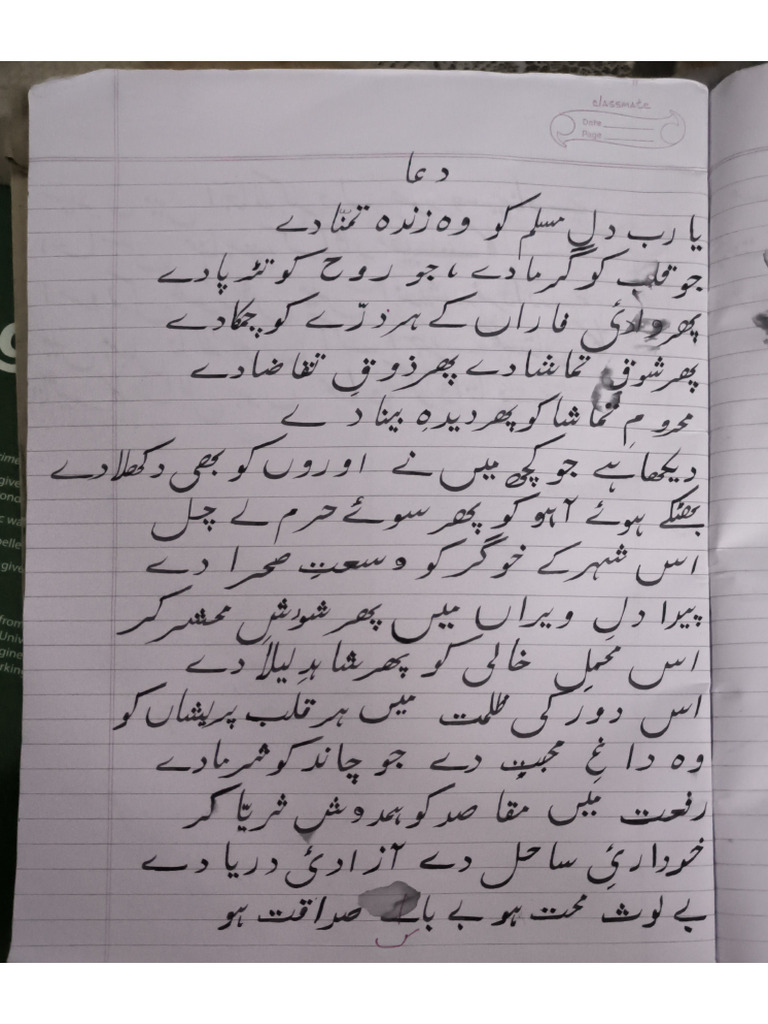 classmate
Date
Page
دعا
یا رب دلِ مسلم کو وہ زندہ تمنّا دے
جو قلب کو گرما دے ، جو روح کو تڑپا دے
پھر وادئ فاراں کے ہر ذرّے کو چمکا دے
پھر شوقِ تماشا دے پھر ذوقِ تقاضا دے
محرومِ تماشا کو پھر دیدہِ بینا دے
دیکھا ہے جو کچھ میں نے اوروں کو بھی دکھلا دے
بھٹکے ہوئے آہو کو پھر سوئے حرم لے چل
اس شہر کے خوگر کو وسعتِ صحرا دے
پیدا دلِ ویراں میں پھر شورشِ محشر کر
اس محملِ خالی کو پھر شاہدِ لیلا دے
اس دور کی ظلمت میں ہر قلب پریشاں کو
وہ داغِ محبت دے جو چاند کو شرما دے
رفعت میں مقاصد کو ہمدوشِ ثریّا کر
خوداریِٔ ساحل دے آزادئ دریا دے
بے لوث محت ہو بے باک صداقت ہو